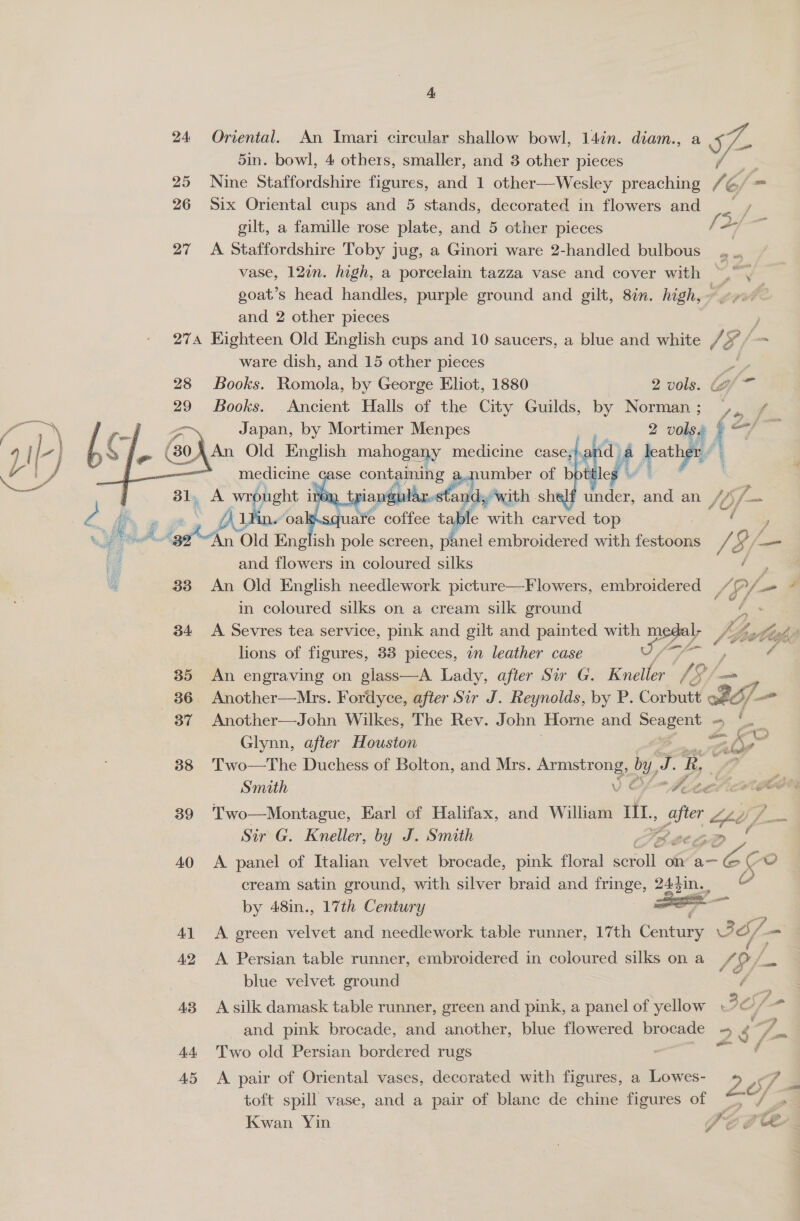 4
24 Oriental. An Imari circular shallow bowl, 14in. diam., a 57/-
5in. bowl, 4 others, smaller, and 3 other pieces
25 Nine Staffordshire figures, and 1 other—Wesley preaching 16/=
26 Six Oriental cups and 5 stands, decorated in flowers and
gilt, a famille rose plate, and 5 other pieces
27 A Staffordshire Toby jug, a Ginori ware 2-handled bulbous
vase, 12in. high, a porcelain tazza vase and cover with
goat's head handles, purple ground and gilt, 8in. high,
and 2 other pieces
27A Eighteen Old English cups and 10 saucers, a blue and white 18/-
ware dish, and 15 other pieces
28 Books. Romola, by George Eliot, 1880 2 vols.
29 Books. Ancient Halls of the City Guilds, by Norman;
Japan, by Mortimer Menpes 2 vols.
30 An Old English mahogany medicine case, and a leather
medicine case containing a number of bottles
31 A wrought iron triangular stand, with shelf under, and an
11in. oak square coffee table with carved top
32 An Old English pole screen, panel embroidered with festoons 18/-
and flowers in coloured silks
33 An Old English needlework picture—Flowers, embroidered
in coloured silks on a cream silk ground
34 A Sevres tea service, pink and gilt and painted with medal-
lions of figures, 33 pieces, in leather case
35 An engraving on glass—A Lady, after Sir G. Kneller 18/-
36 Another—Mrs. Fordyce, after Sir J. Reynolds, by P. Corbutt
37 Another—John Wilkes, The Rev. John Horne and Seagent
Glynn, after Houston
38 Two—The Duchess of Bolton, and Mrs. Armstrong, by J. R.
Smith
39 Two—Montague, Earl of Halifax, and William III., after
Sir G. Kneller, by J. Smith
40 A panel of Italian velvet brocade, pink floral scroll on a
cream satin ground, with silver braid and fringe, 24½in.
by 48in., 17th Century
41 A green velvet and needlework table runner, 17th Century
42 A Persian table runner, embroidered in coloured silks on a
blue velvet ground
43 A silk damask table runner, green and pink, a panel of yellow
and pink brocade, and another, blue flowered brocade
44 Two old Persian bordered rugs
45 A pair of Oriental vases, decorated with figures, a Lowes-
toft spill vase, and a pair of blanc de chine figures of
Kwan Yin